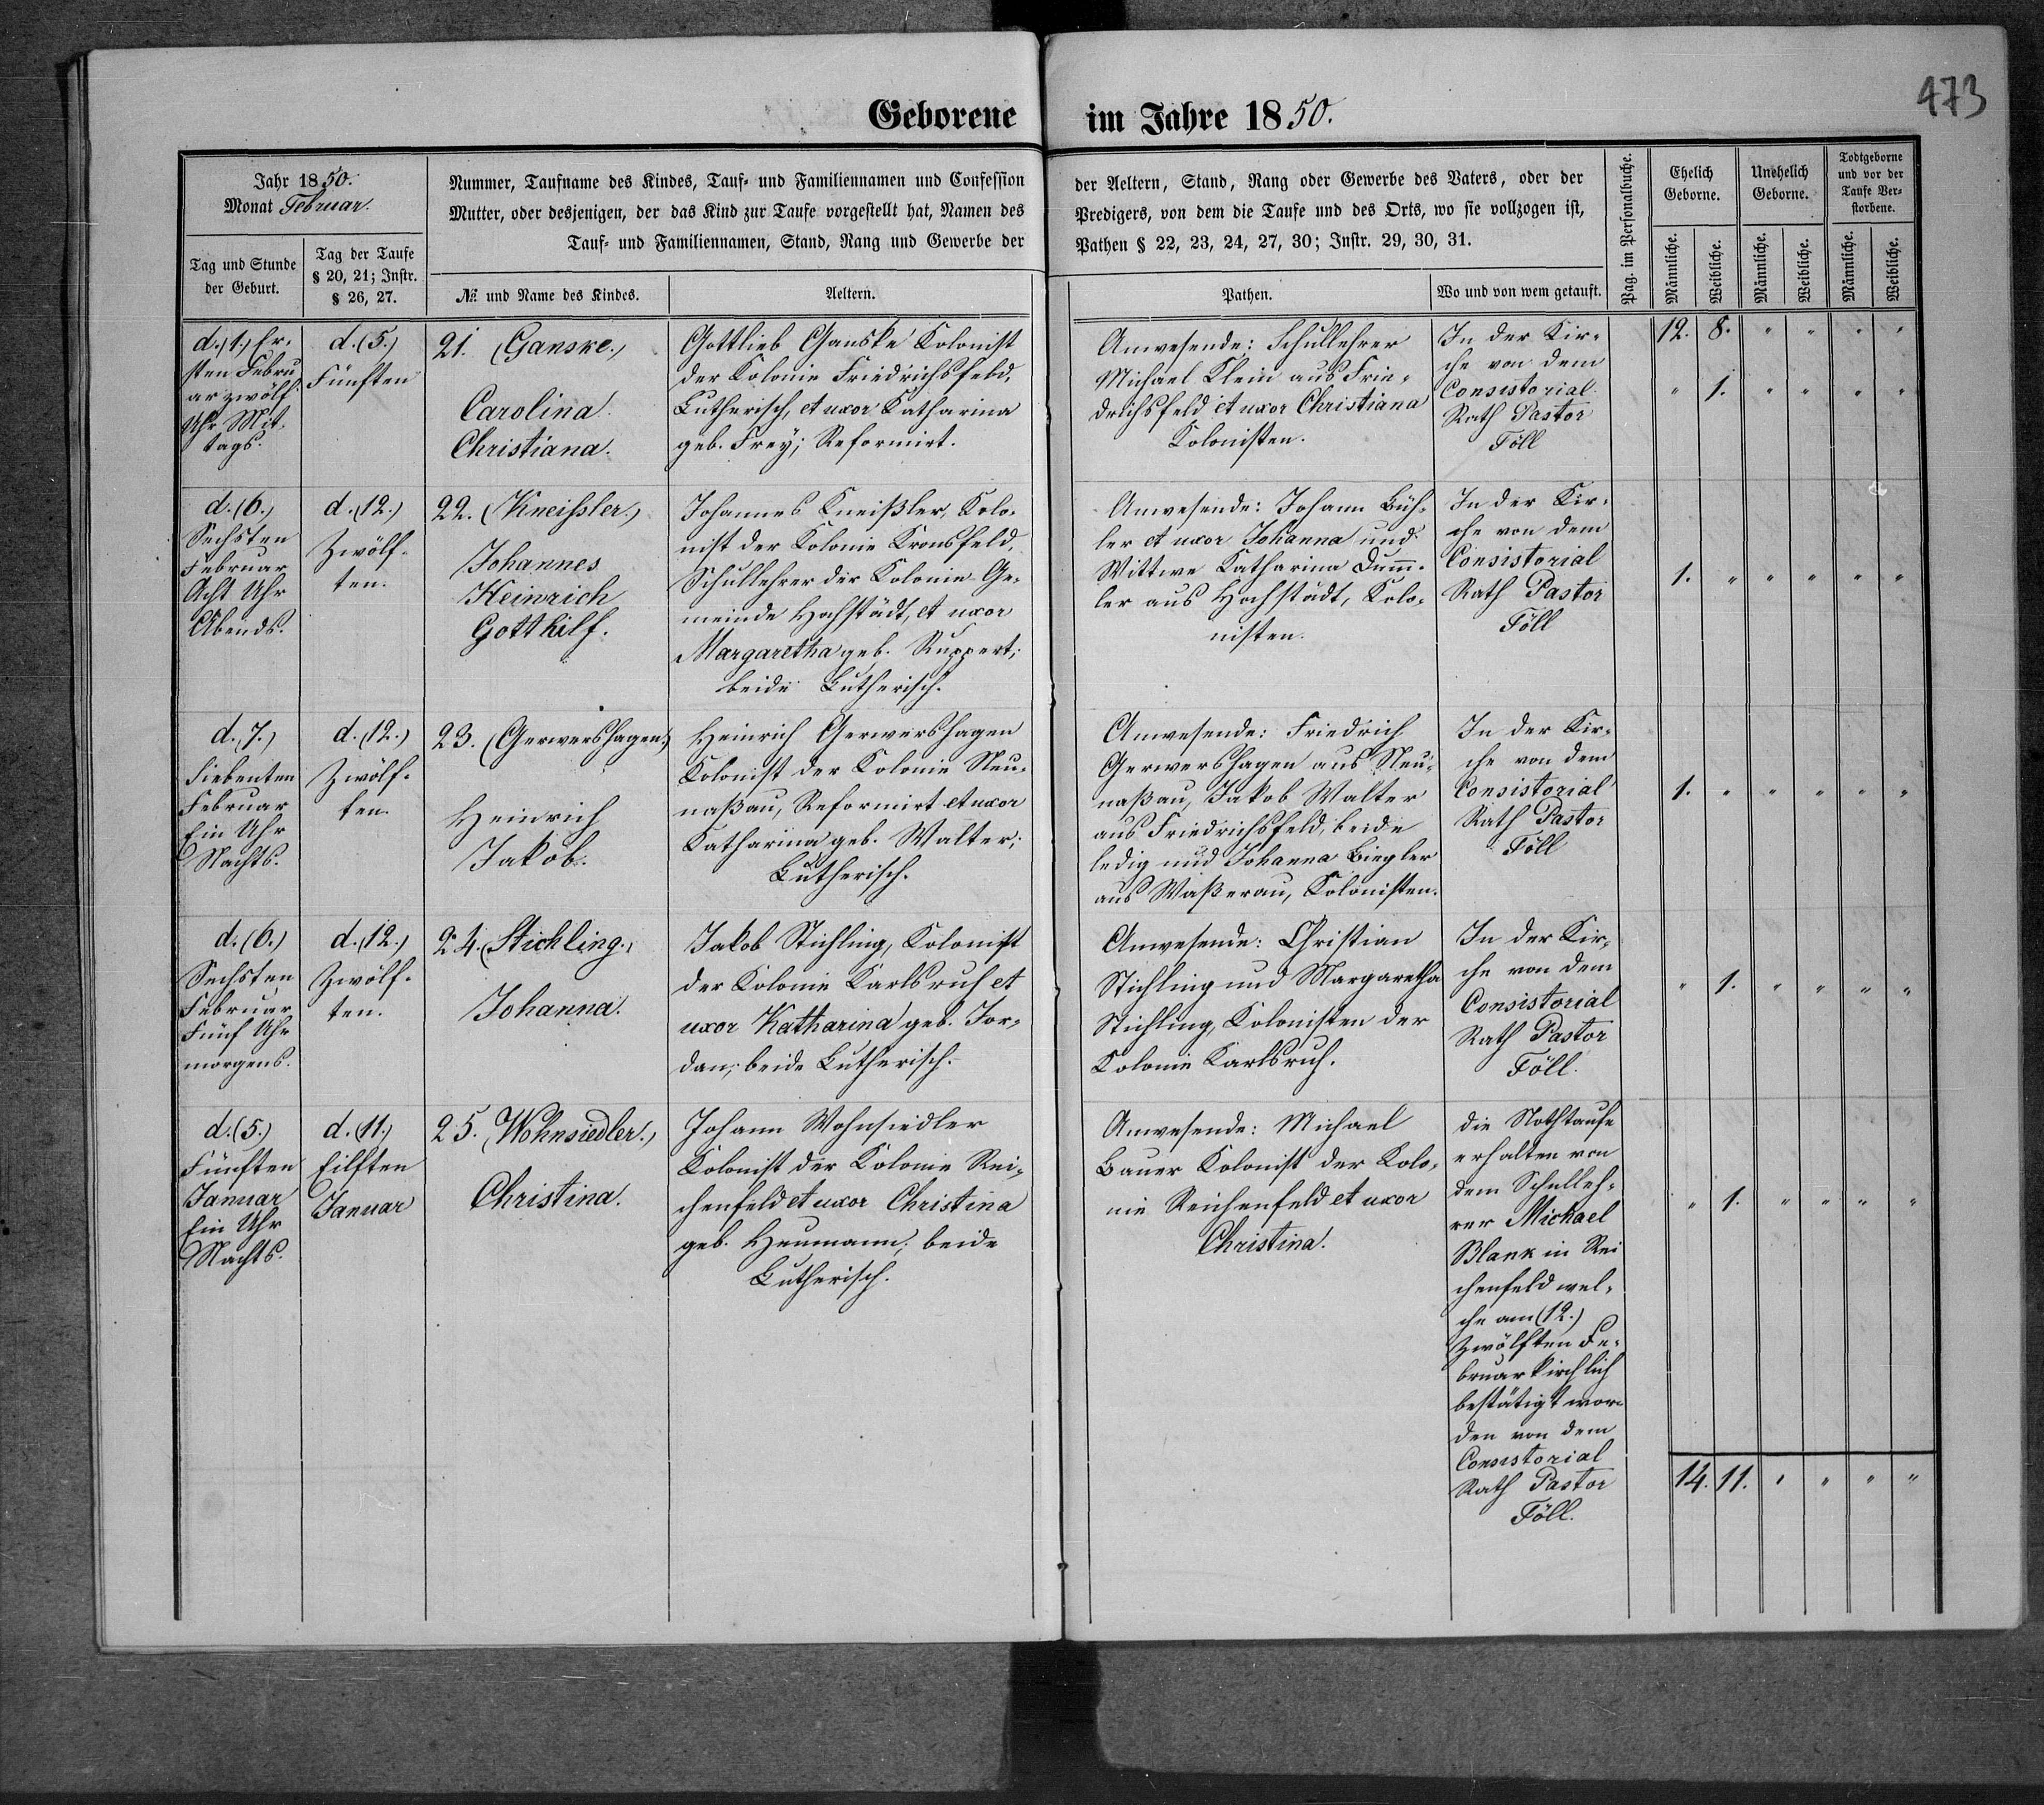 473
Geborene im Jahre 1850.
Jahr 1850.
Monat Februar.
Tag und Stunde
der Geburt.
Tag der Taufe
§ 20, 21; Instr.
§ 26, 27.
Nummer, Taufname des Kindes, Tauf- und Familiennamen und Confession
Mutter, oder desjenigen, der das Kind zur Taufe vorgestellt hat, Namen des
Tauf- und Familiennamen, Stand, Rang und Gewerbe der
№ und Name des Kindes.
Aeltern.
der Aeltern, Stand, Rang oder Gewerbe des Vaters, oder der
Predigers, von dem die Taufe und des Orts, wo sie vollzogen ist,
Pathen § 22, 23, 24, 27, 30; Instr. 29, 30, 31.
Pathen.
Wo und von wem getauft.
Pag. im Personalbuche.
Ehelich
Geborne.
Unehelich
Geborne.
Todtgeborne
und vor der
Taufe Ver-
storbene.
Männliche.
Weibliche.
Männliche.
Weibliche.
Männliche.
Weibliche.
d. (1.) Er-
sten Febru
ar zwölf
Uhr Mit-
tags.
d. (5.)
Fünften
21. (Ganske.)
Carolina
Christiana.
Gottlieb Ganske Kolonist
der Kolonie Friedrichsfeld,
Lutherisch, et uxor Katharina
geb. Frey; Reformirt.
Anwesende: Schullehrer
Michael Klein aus Frie-
drichsfeld et uxor Christiana
Kolonisten.
In der Kir-
che von dem
Consistorial
Rath Pastor
Föll
12. 8. " " " "
" 1. " " " "
d. (6.)
Sechsten
Februar
Acht Uhr
Abends.
d. (12.)
Zwölf-
ten.
22. (Kneissler.)
Johannes
Heinrich
Gotthilf.
Johannes Kneißler, Kolo-
nist der Kolonie Kronsfeld,
Schullehrer der Kolonie Ge-
meinde Hochstädt, et uxor
Margaretha geb. Ruppert;
beide Lutherisch.
Anwesende: Johann Büh-
ler et uxor Johanna und
Wittwe Katharina Dum̅-
ler aus Hochstädt, Kolo-
nisten.
In der Kir-
che von dem
Consistorial
Rath Pastor
Föll
1. " " " " "
d. (7.)
Siebenten
Februar
Ein Uhr
Nachts.
d. (12.)
Zwölf-
ten.
23. (Gerwershagen.)
Heinrich
Jakob.
Heinrich Gerwershagen
Kolonist der Kolonie Neu-
naßau, Reformirt et uxor
Katharina geb. Walter;
Lutherisch.
Anwesende: Friedrich
Gerwershagen aus Neu-
naßau, Jakob Walter
aus Friedrichsfeld, beide
ledig und Johanna Biegler
aus Waßerau, Kolonisten.
In der Kir-
che von dem
Consistorial
Rath Pastor
Föll
1. " " " " "
d. (6.)
Sechsten
Februar
Fünf Uhr
morgens.
d. (12.)
Zwölf-
ten.
24. (Stichling.)
Johanna.
Jakob Stichling, Kolonist
der Kolonie Karlsruh et
uxor Katharina geb. Jor-
dan; beide Lutherisch.
Anwesende: Christian
Stichling und Margaretha
Stichling, Kolonisten der
Kolonie Karlsruh.
In der Kir-
che von dem
Consistorial
Rath Pastor
Föll.
" 1. " " " "
d. (5.)
Fünften
Januar
Ein Uhr
Nachts.
d. (11.)
Eilften
Januar
25. (Wohnsiedler.)
Christina.
Johann Wohnsiedler
Kolonist der Kolonie Rei-
chenfeld et uxor Christina
geb. Heumann; beide
Lutherisch.
Anwesende: Michael
Bauer Kolonist der Kolo-
nie Reichenfeld et uxor
Christina.
die Nothtaufe
erhalten von
dem Schulleh-
rer Michael
Blank in Rei
chenfeld wel-
che am (12.)
Zwölften Fe-
bruar kirchlich
bestätigt wor-
den von dem
Consistorial
Rath Pastor
Föll.
" 1. " " " "
14. 11. " " " "